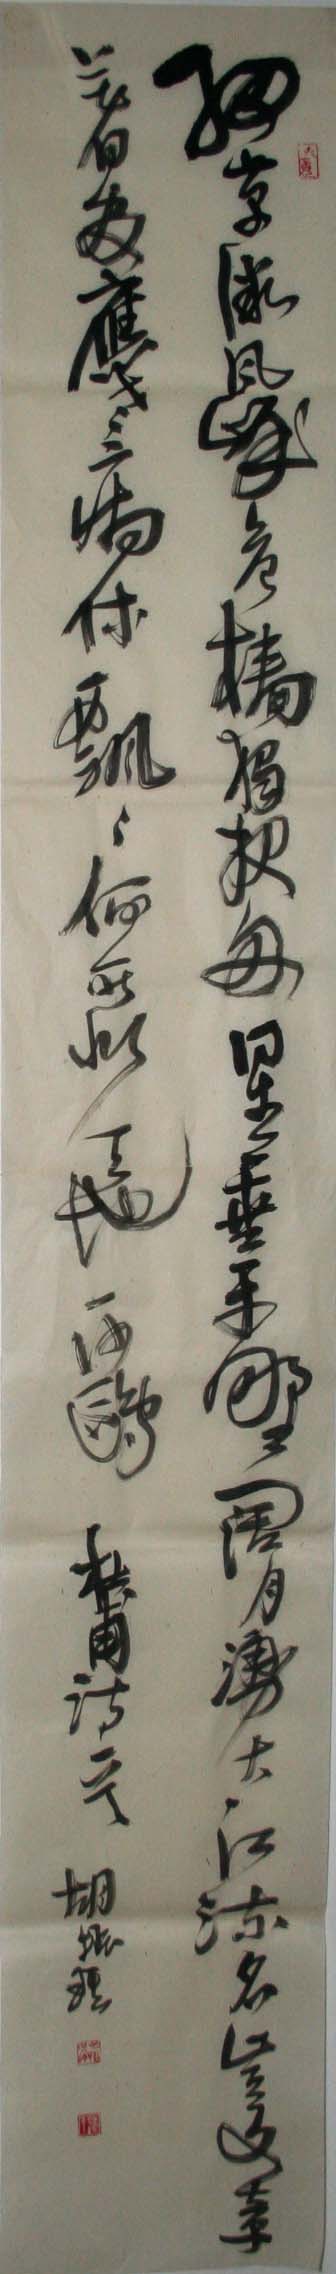 細草微風岸危檣獨夜舟星垂平野闊月湧大江流名豈文章
著官應老病休飄〻何所似天地一沙鷗 杜甫詩一首 胡振